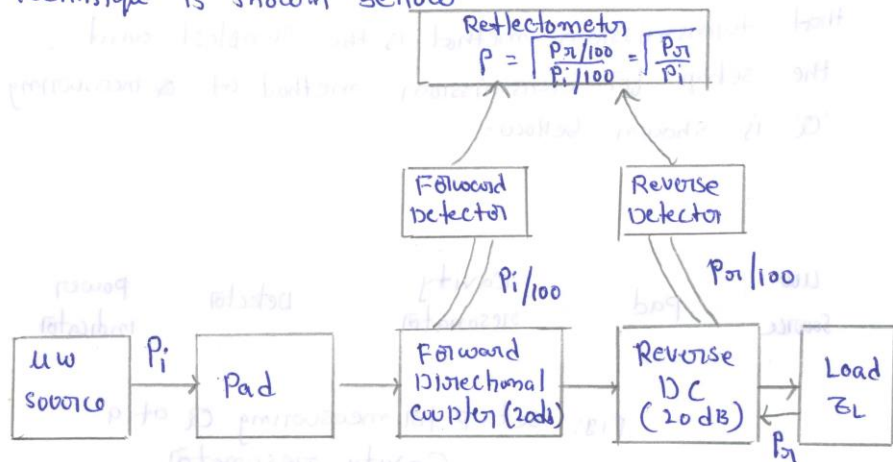 technique is shown bellow
Reflectometer
ρ = √(Pr/100 / Pi/100) = √(Pr / Pi)
Forward
Detector
Reverse
Detector
Pi/100
Pr/100
μw
source
Pi
Pad
Forward
Directional
coupler (20dB)
Reverse
DC
(20 dB)
Load
ZL
Pr